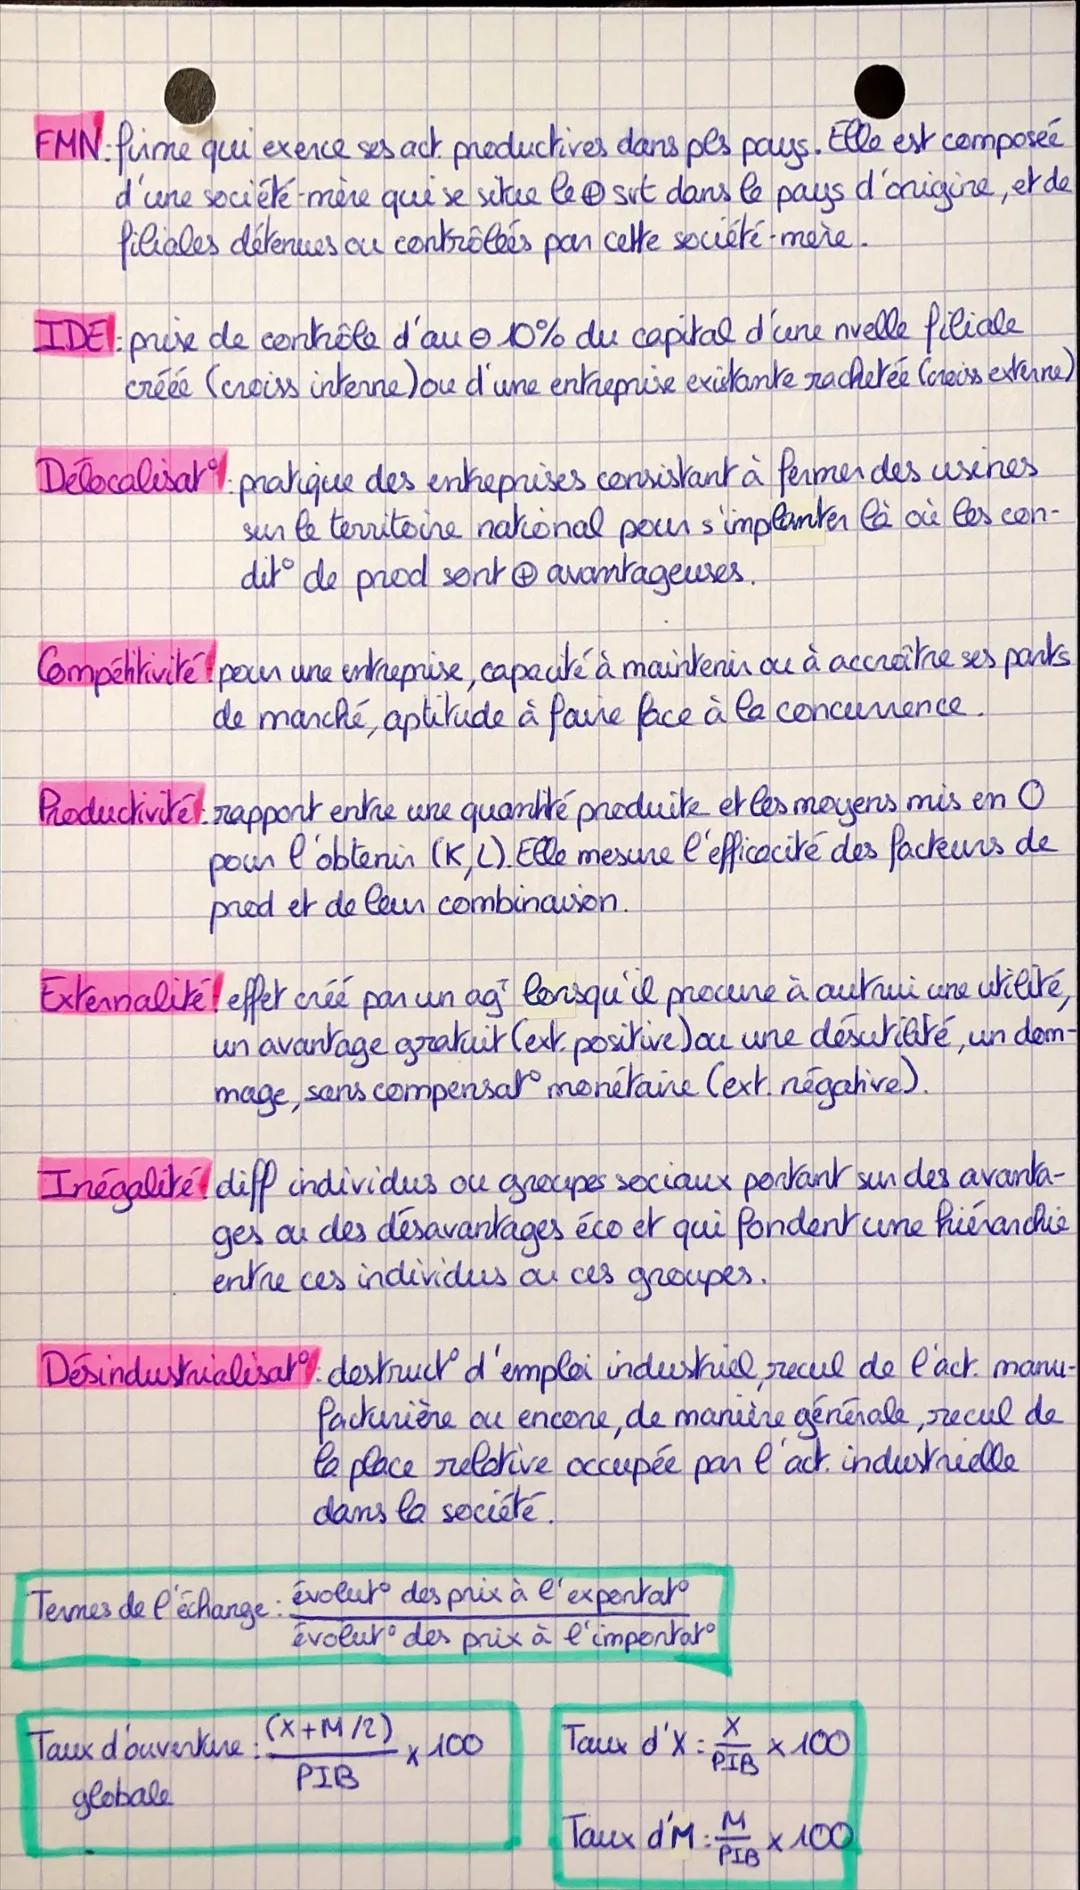 FMN : firme qui exerce ses act. productives dans pls pays. Elle est composée
d'une société-mère qui se situe le ⊕ svt dans le pays d'origine, et de
filiales détenues ou contrôlées par cette société-mère.
IDE : prise de contrôle d'au ⊖ 10% du capital d'une nvelle filiale
créée (croiss interne) ou d'une entreprise existante rachetée (croiss externe)
Délocalisat° : pratique des entreprises consistant à fermer des usines
sur le territoire national pour s'implanter là où les con-
dit° de prod sont ⊕ avantageuses.
Compétitivité : pour une entreprise, capacité à maintenir ou à accroître ses parts
de marché, aptitude à faire face à la concurrence.
Productivité : rapport entre une quantité produite et les moyens mis en O
pour l'obtenir (K, L). Elle mesure l'efficacité des facteurs de
prod et de leur combinaison.
Externalité : effet créé par un agt lorsqu'il procure à autrui une utilité,
un avantage gratuit (ext. positive) ou une désutilité, un dom-
mage, sans compensat° monétaire (ext. négative).
Inégalité : diff individus ou groupes sociaux portant sur des avanta-
ges ou des désavantages éco et qui fondent une hiérarchie
entre ces individus ou ces groupes.
Désindustrialisat° : destruct° d'emploi industriel, recul de l'act. manu-
facturière ou encore, de manière générale, recul de
la place relative occupée par l'act. industrielle
dans la société.
Termes de l'échange : évolut° des prix à l'exportat°
évolut° des prix à l'importat°
Taux d'ouverture : (X+M/2) x 100
globale PIB
Taux d'X : X x 100
PIB
Taux d'M : M x 100
PIB